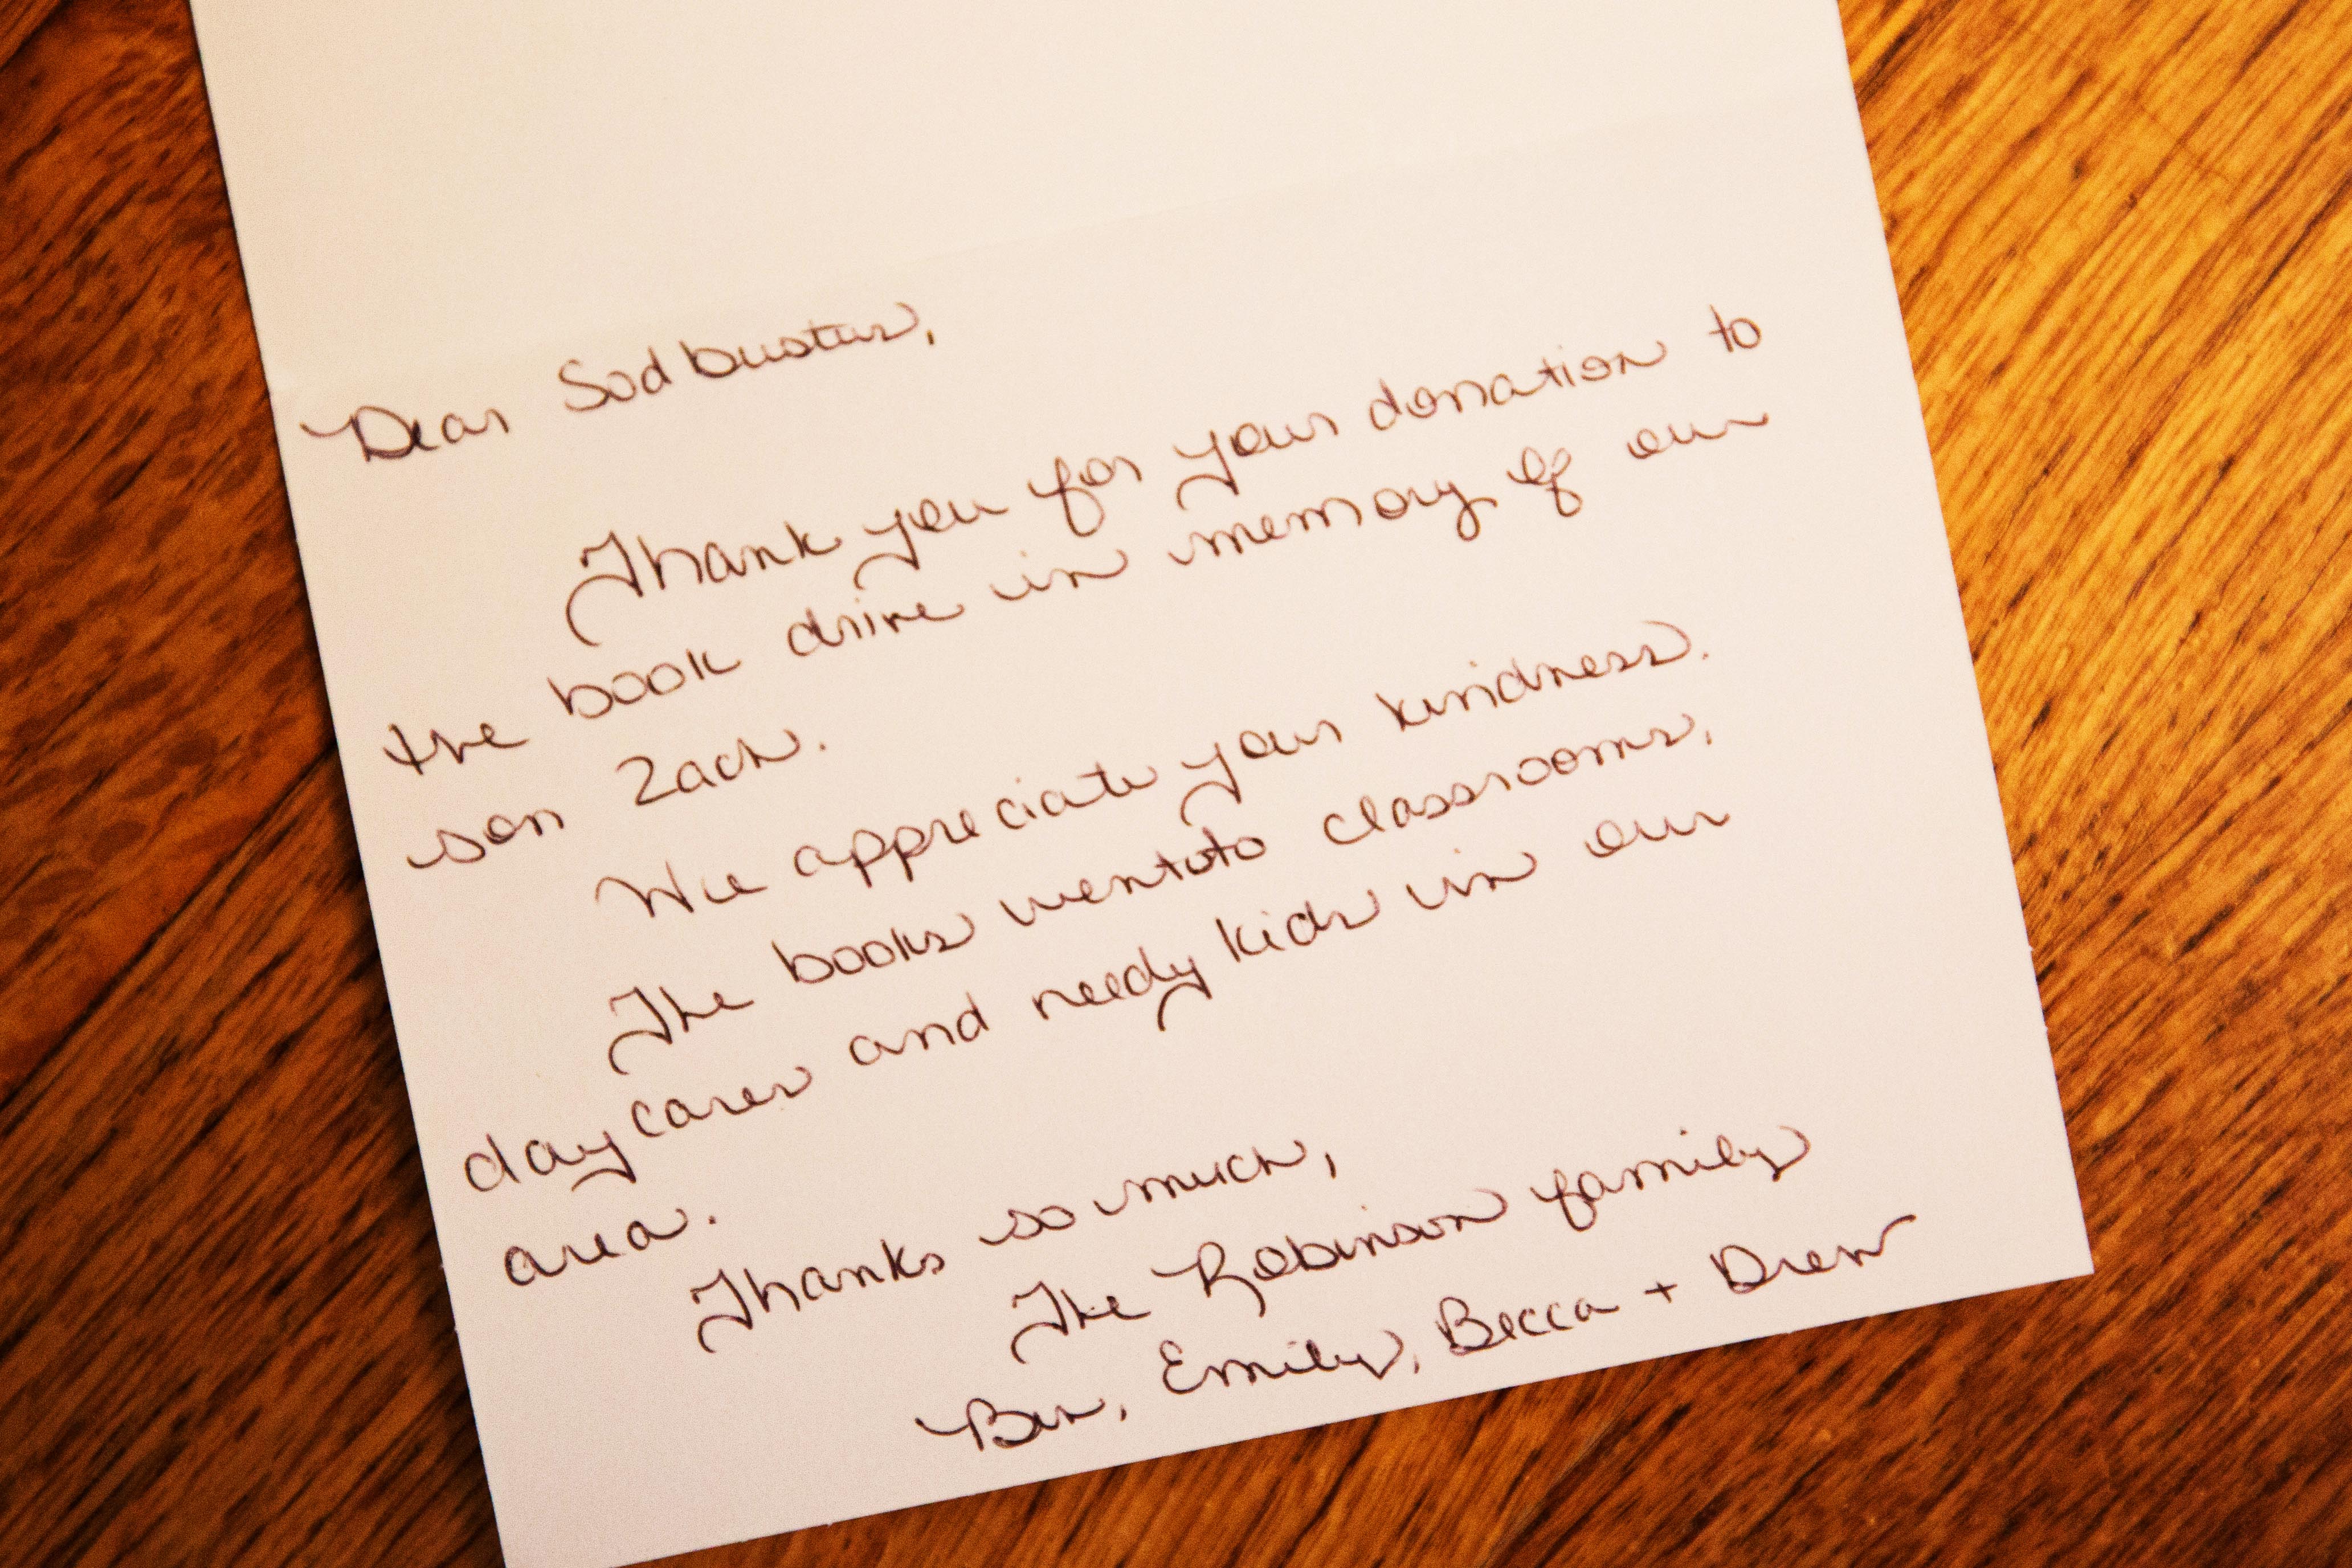 Dear Sodbusters,
Thank you for your donation to
the book drive in memory of our
son Zach.
We appreciate your kindness.
The books went to classrooms,
daycares and needy kids in our
area.
Thanks so much,
The Robinson family
Ben, Emily, Becca + Drew